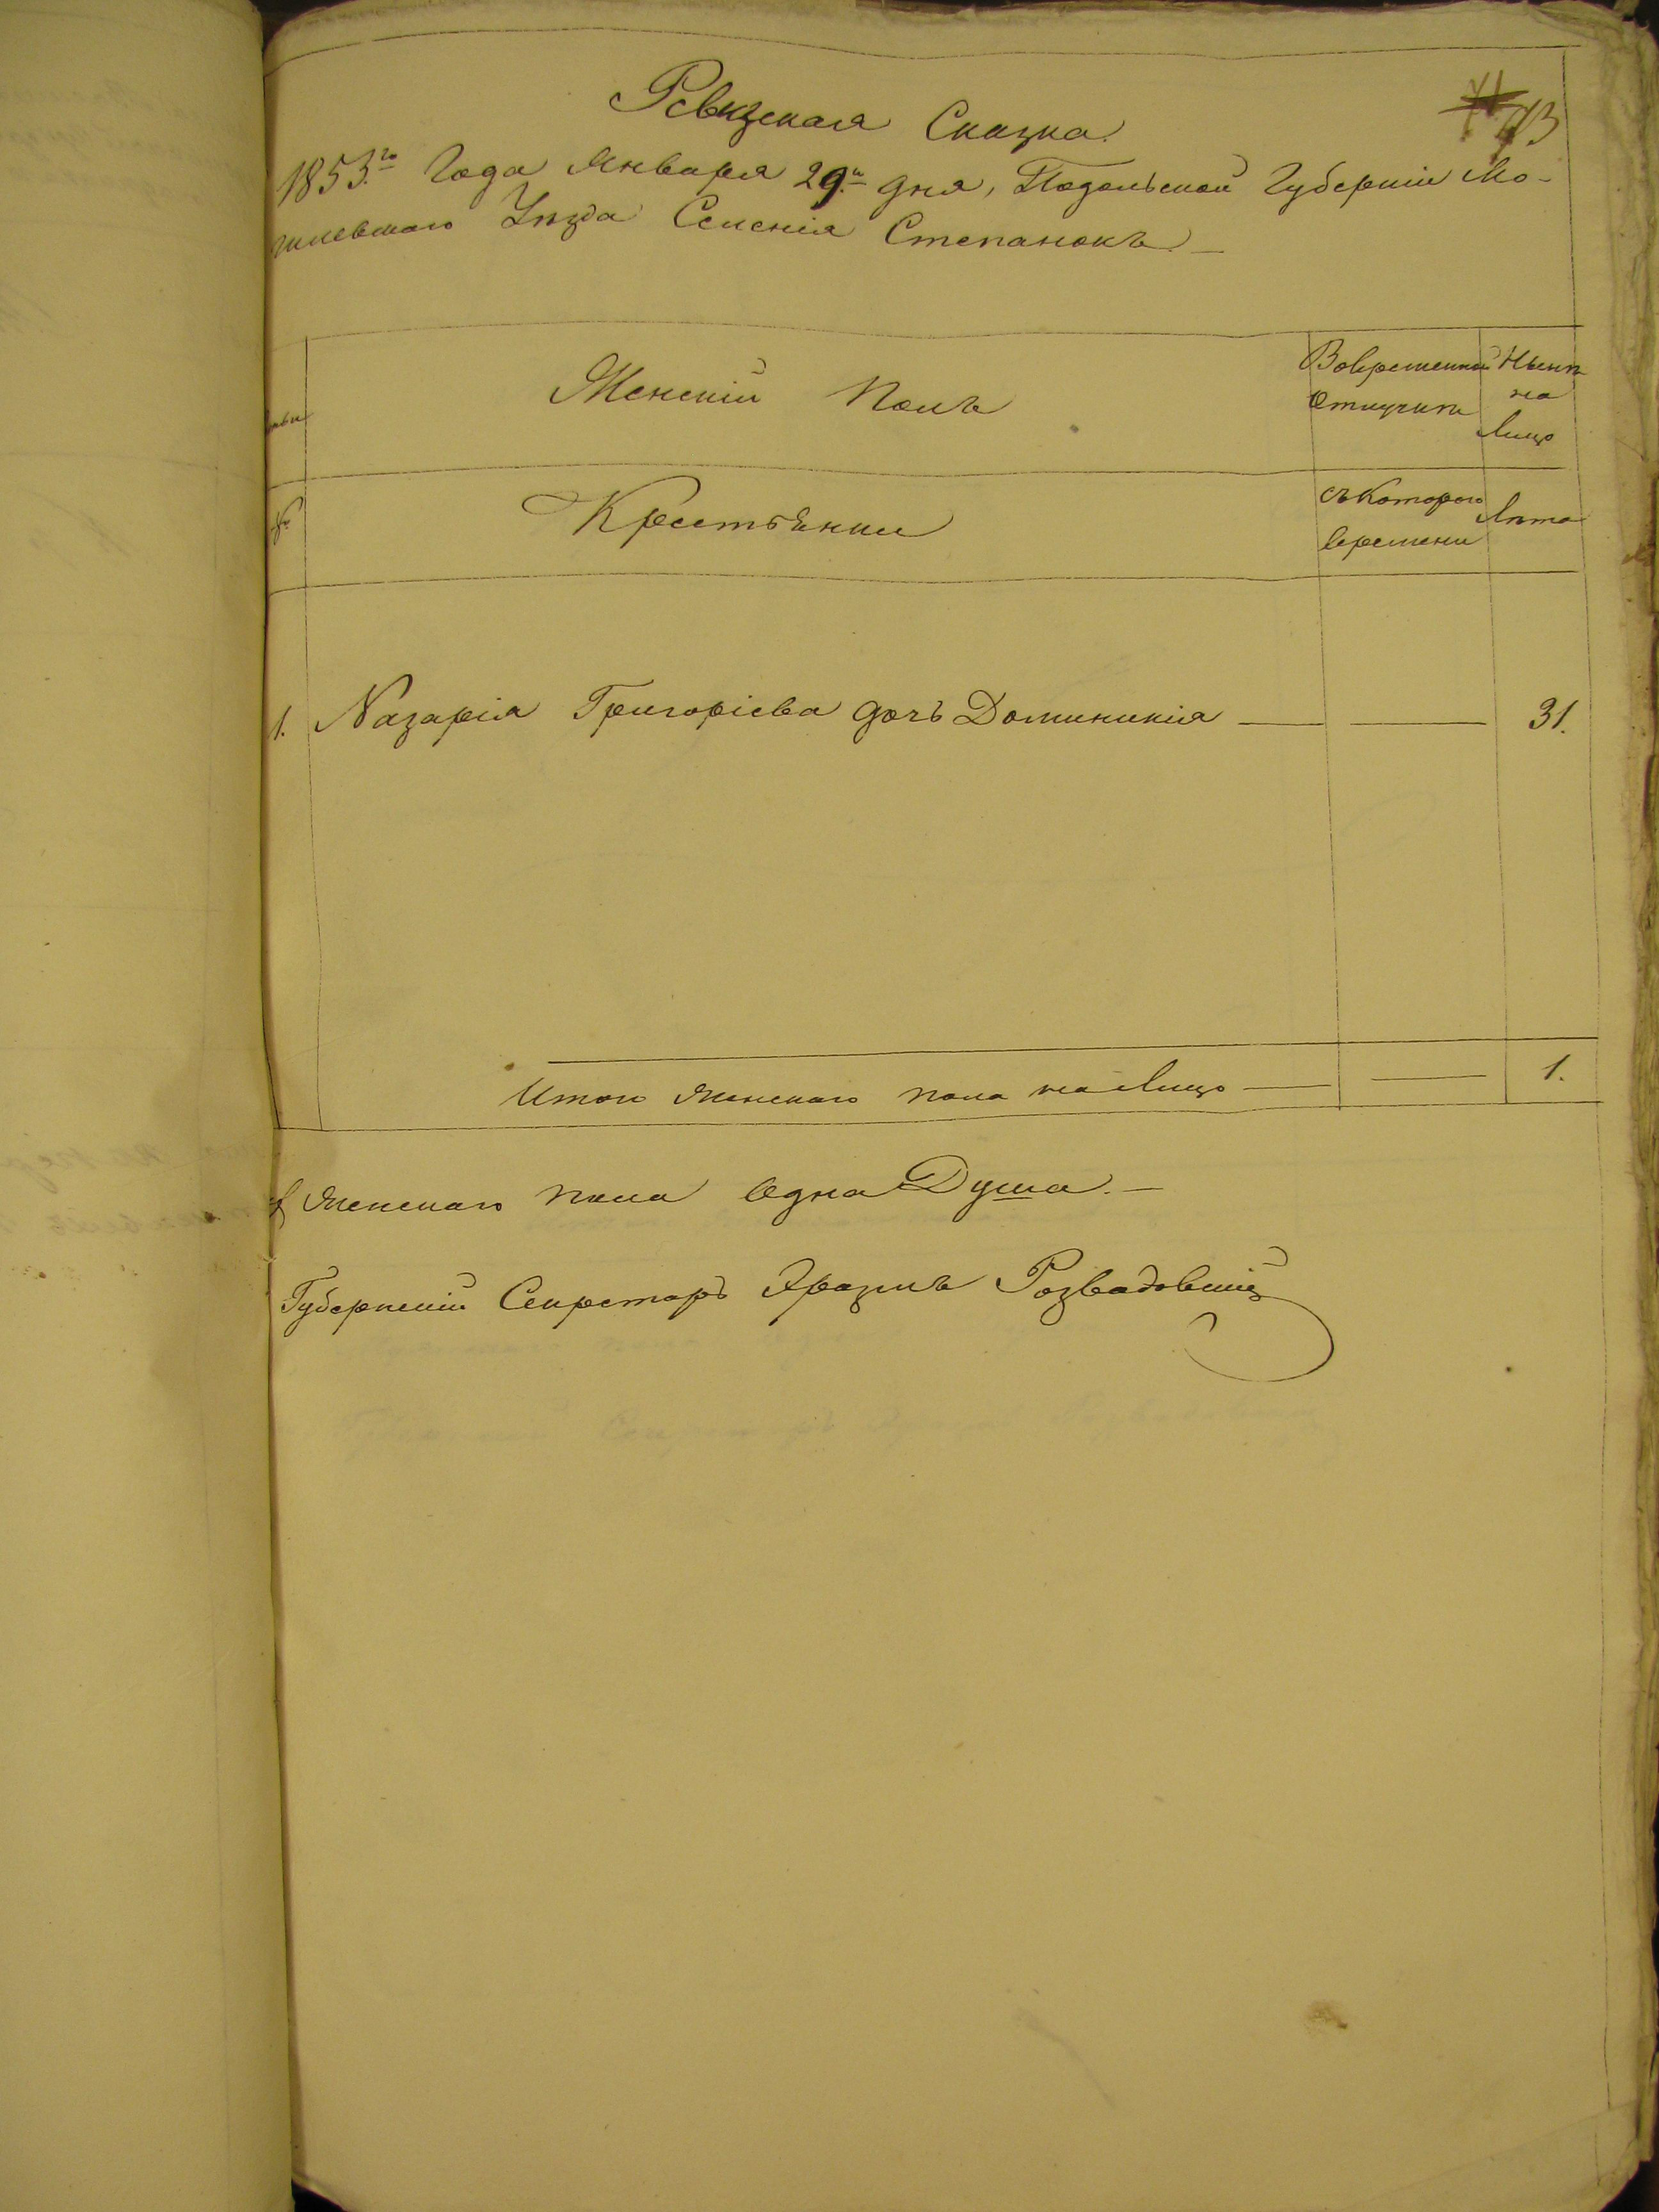 Ревизская Сказка.
73
1853.го Года Января 29.го дня, Подольской Губерніи Мо-
гилевскаго Уѣзда Селенія Степанокъ.—
Женскій Полъ
Вовременной
отлучкѣ
Нынѣ
на
Лицо
Крестьянки
съ Котораго
времени
Лѣта
1. Назарія Григоріева дочь Доминикія — — 31.
Итого женскаго пола на Лицо — — 1.
женскаго пола Одна Душа.—
Губернскій Секретарь Эразмъ Розвадовскій